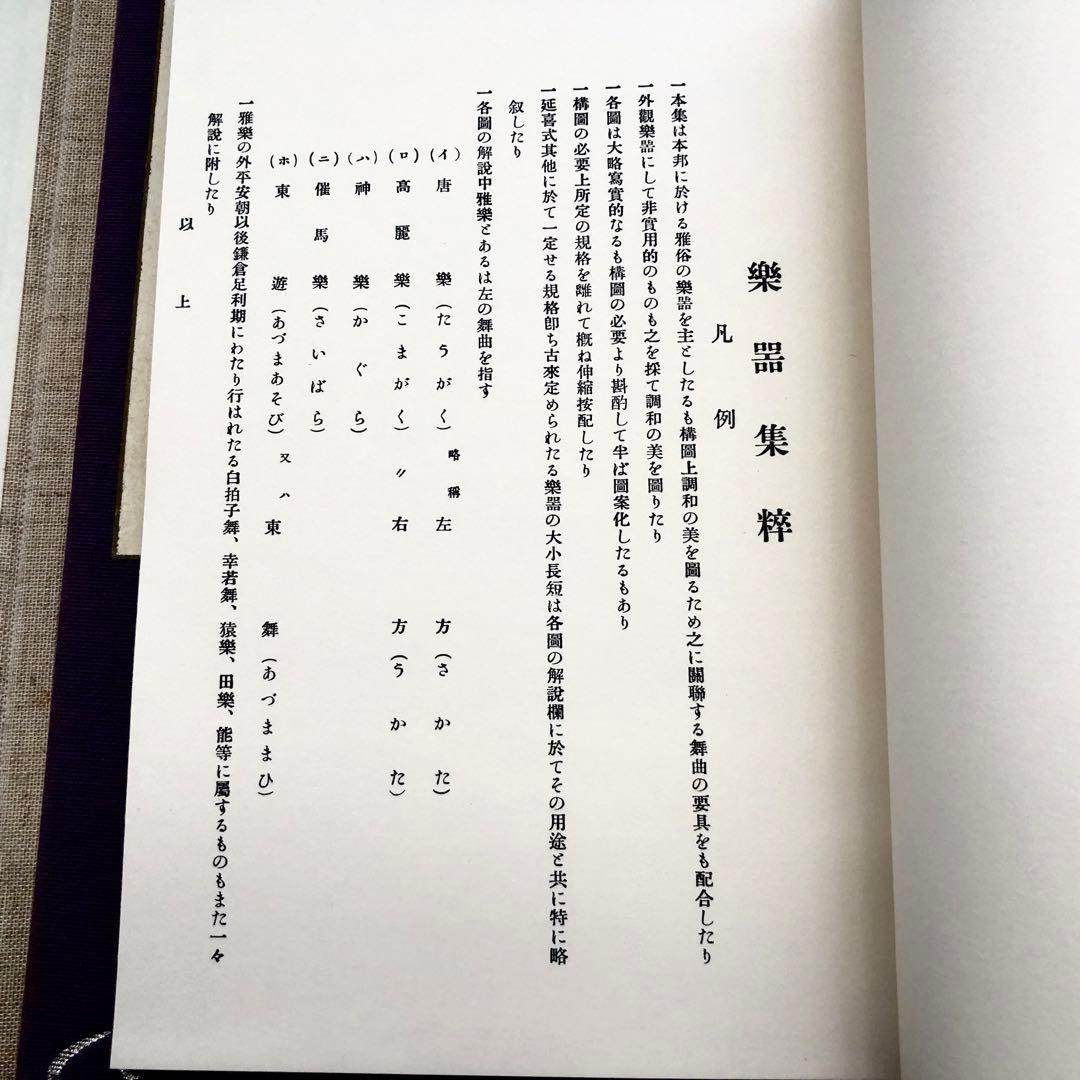 樂器集粹
凡例
一本集は本邦に於ける雅俗の樂器を主としたるも構圖上調和の美を圖るため之に關聯する舞曲の要具をも配合したり
一外觀樂器にして非實用的のものも之を採て調和の美を圖りたり
一各圖は大略寫實的なるも構圖の必要より斟酌して半ば圖案化したるもあり
一構圖の必要上所定の規格を離れて概ね伸縮按配したり
一延喜式其他に於て一定せる規格卽ち古來定められたる樂器の大小長短は各圖の解說欄に於てその用途と共に特に略
叙したり
一各圖の解說中雅樂とあるは左の舞曲を指す
(イ)唐樂(たうがく)略稱左方(さかた)
(ロ)高麗樂(こまがく)〃右方(うかた)
(ハ)神樂(かぐら)
(ニ)催馬樂(さいばら)
(ホ)東遊(あづまあそび)又ハ東舞(あづままひ)
一雅樂の外平安朝以後鎌倉足利期にわたり行はれたる白拍子舞、幸若舞、猿樂、田樂、能等に屬するものもまた一々
解說に附したり
以上